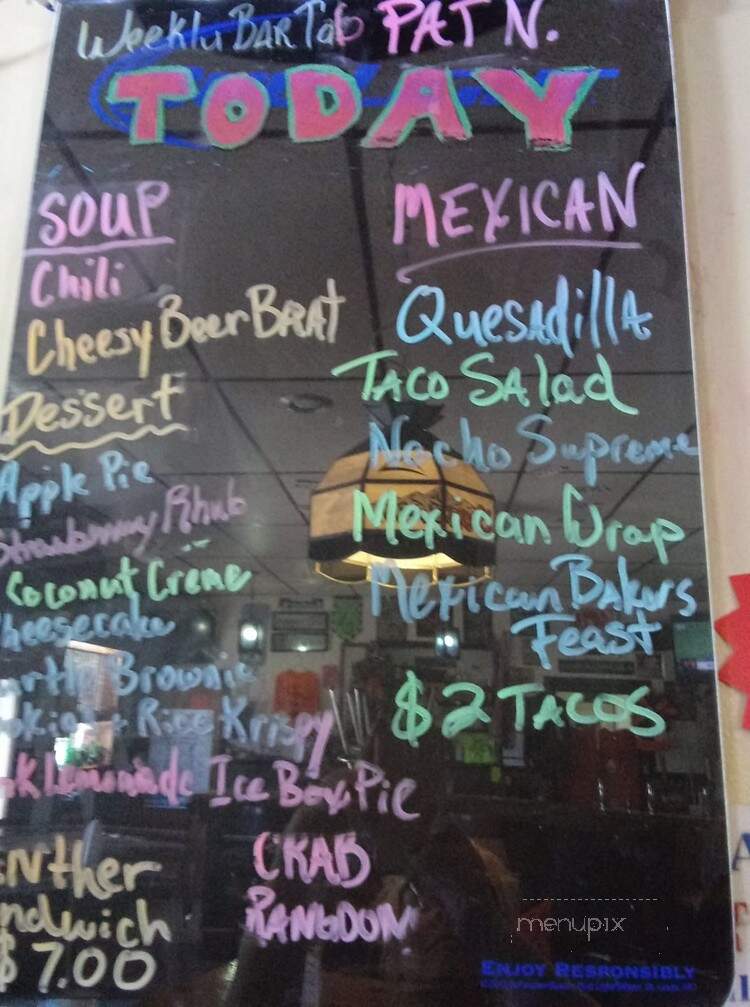 Weekly BAR Tab PAT N.
TODAY
SOUP
Chili
Cheesy Beer BRAt
Dessert
Apple Pie
Strawberry Rhub
Coconut Creme
heesecake
urtle Brownie
okies + Rice Krispy
nk Lemonade Ice Box Pie
MEXICAN
QuesAdillA
TACO SAlad
Nacho Supreme
Mexican Wrap
Mexican BAkers
Feast
$2 TACOS
nther
ndwich
$7.00
CRAB
RANGOON
menupix
ENJOY RESPONSIBLY